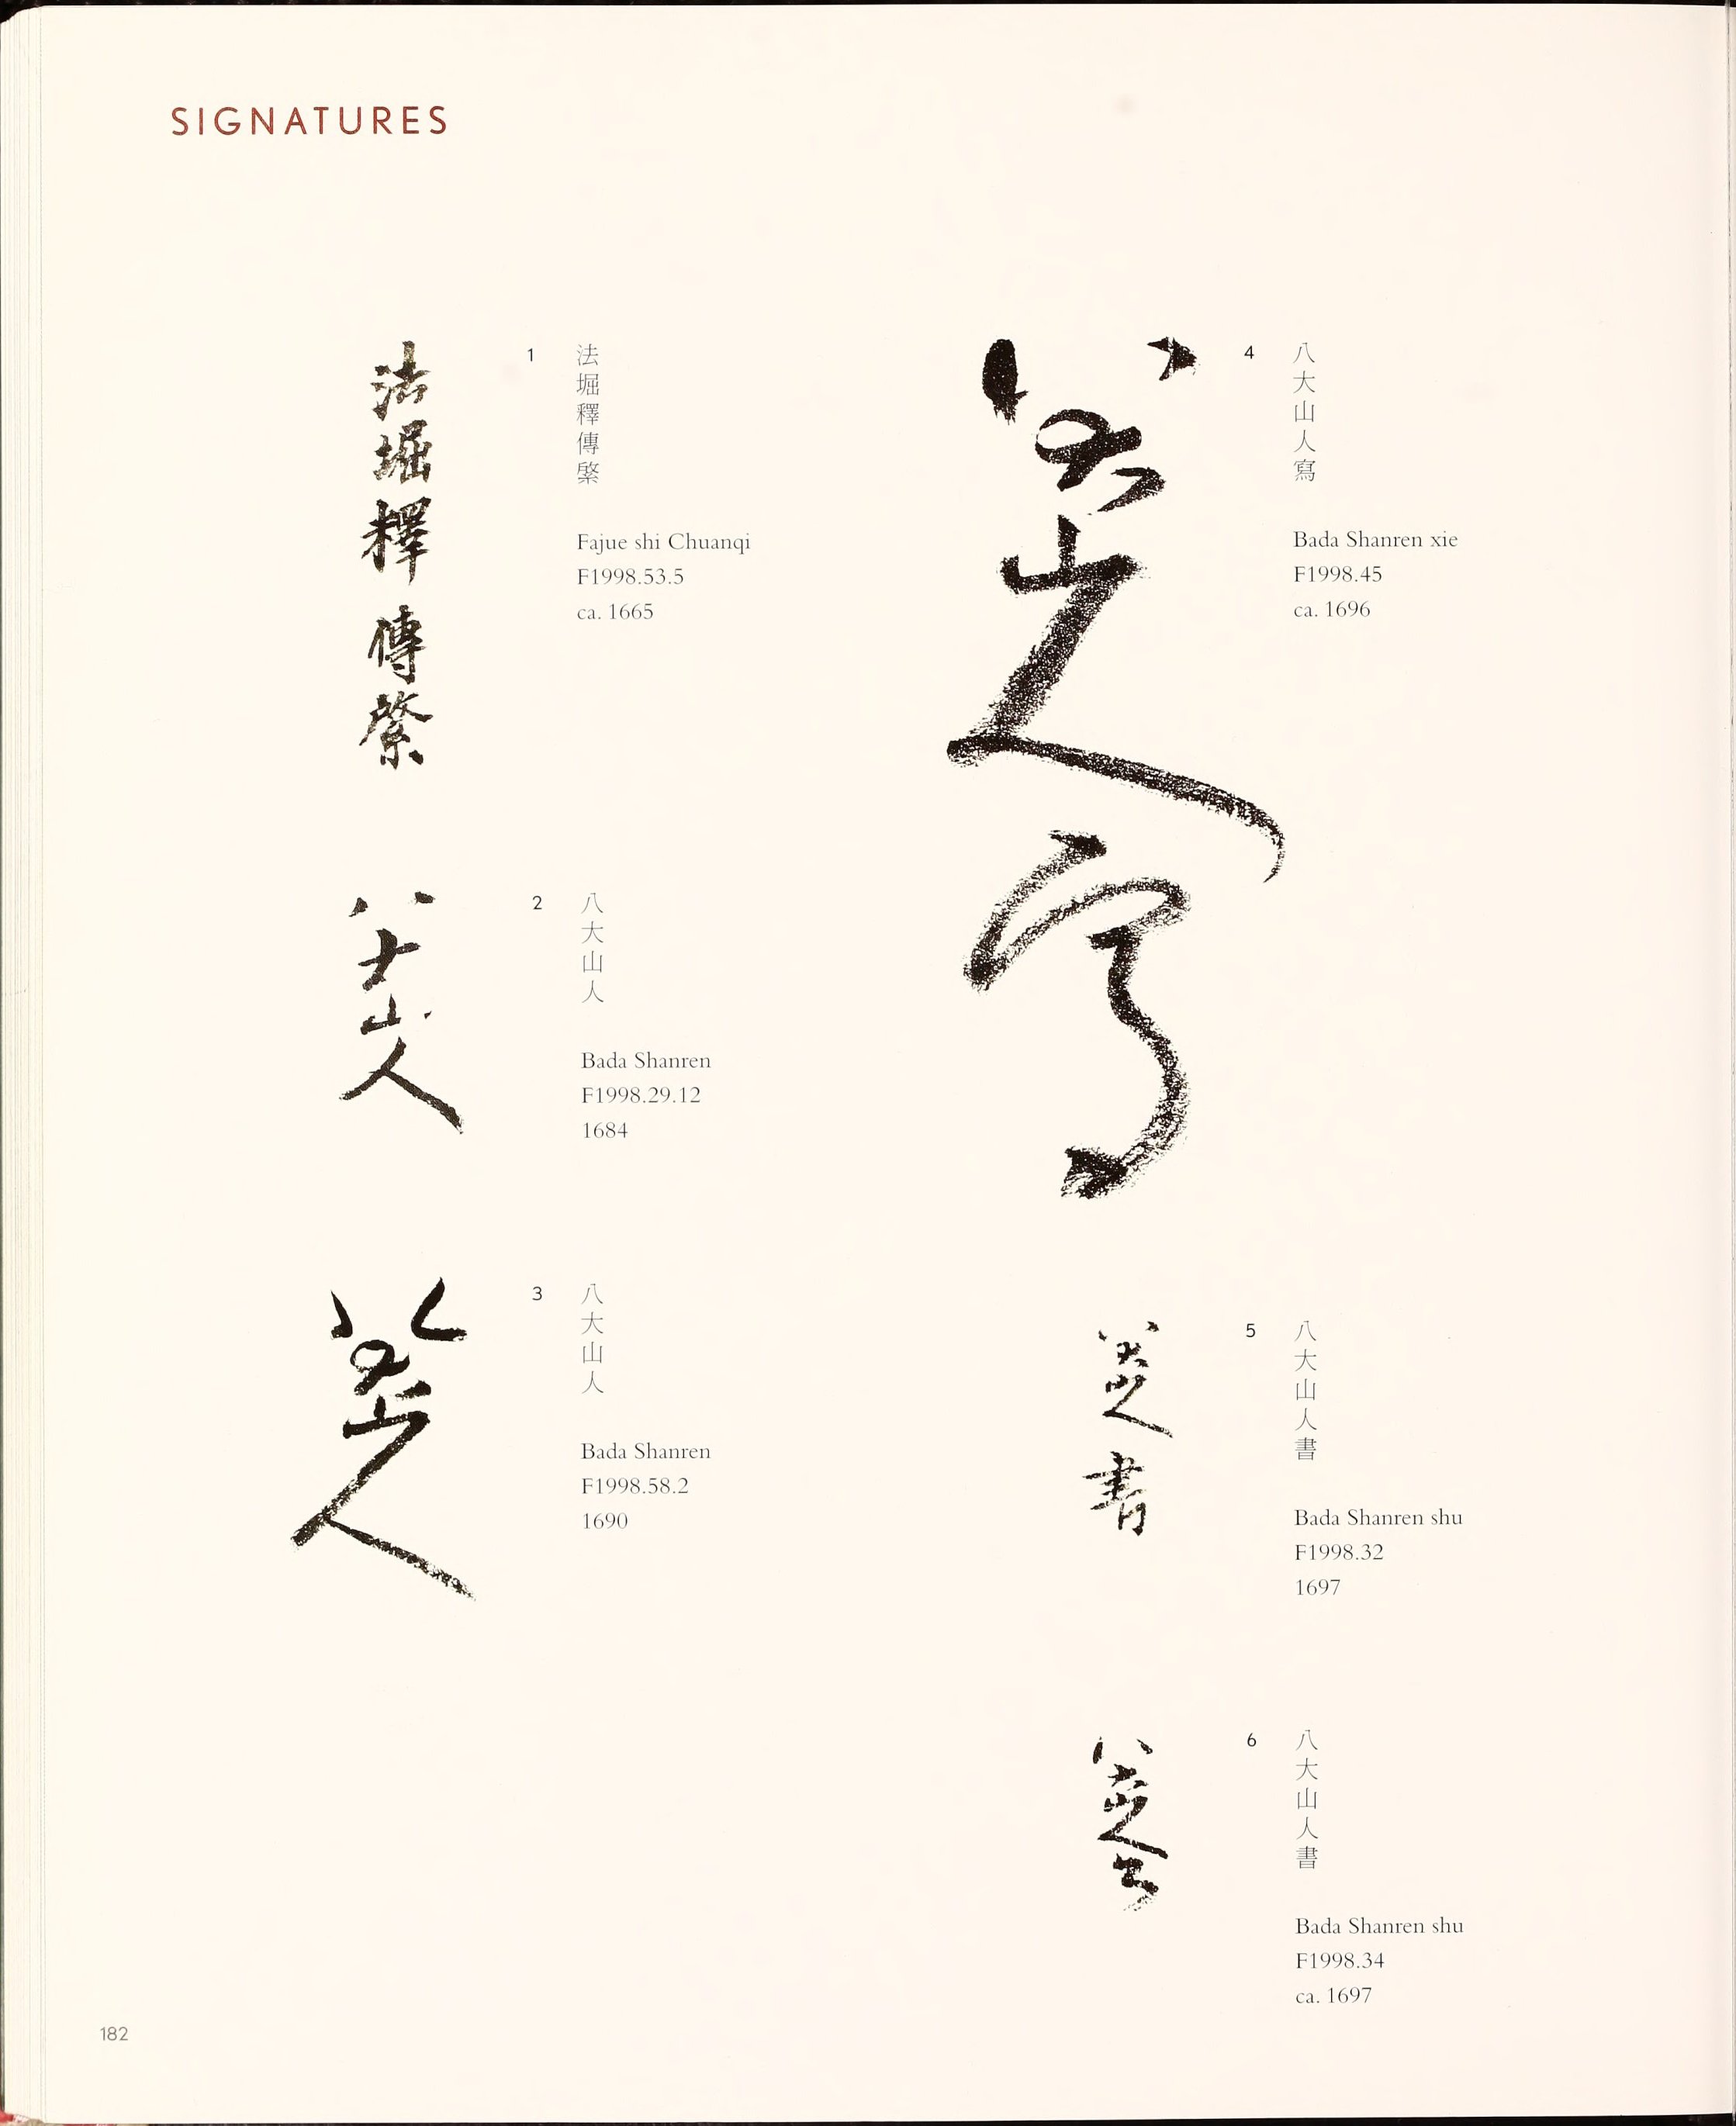 SIGNATURES
法堀釋傳綮
1
法堀釋傳綮
Fajue shi Chuanqi
F1998.53.5
ca. 1665
八大山人
2
八大山人
Bada Shanren
F1998.29.12
1684
八大山人
3
八大山人
Bada Shanren
F1998.58.2
1690
八大山人寫
4
八大山人寫
Bada Shanren xie
F1998.45
ca. 1696
八大山人書
5
八大山人書
Bada Shanren shu
F1998.32
1697
八大山人書
6
八大山人書
Bada Shanren shu
F1998.34
ca. 1697
182